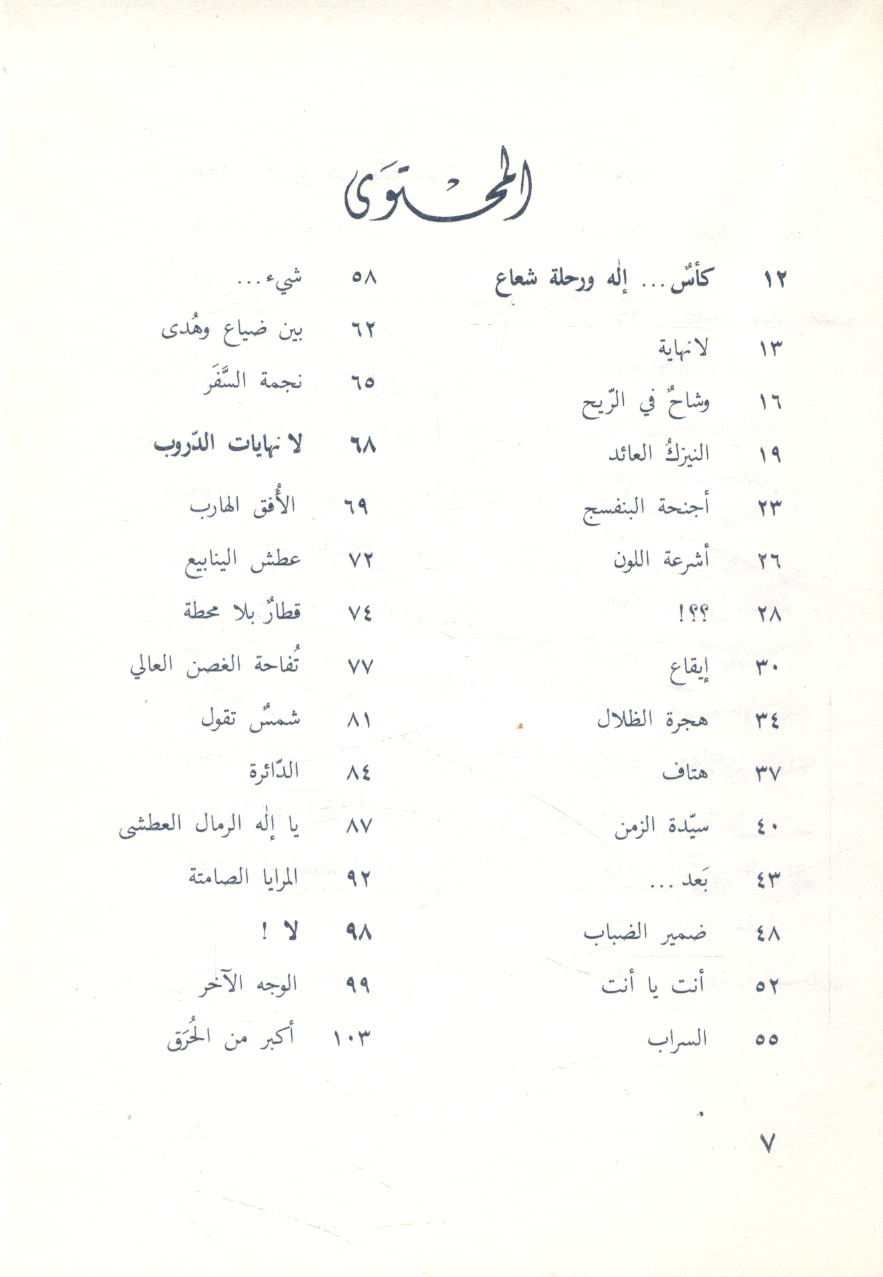 المحتوَى
١٢ كأسٌ... إلٰه ورحلة شعاع
١٣ لانهاية
١٦ وشاحٌ في الرّيح
١٩ النيزكُ العائد
٢٣ أجنحة البنفسج
٢٦ أشرعة اللون
٢٨ ؟؟!
٣٠ إيقاع
٣٤ هجرة الظلال
٣٧ هتاف
٤٠ سيّدة الزمن
٤٣ بَعد...
٤٨ ضمير الضباب
٥٢ أنت يا أنت
٥٥ السراب
٥٨ شيء...
٦٢ بين ضياع وهُدى
٦٥ نجمة السَّفَر
٦٨ لا نهايات الدّروب
٦٩ الأُفق الهارب
٧٢ عطش الينابيع
٧٤ قطارٌ بلا محطة
٧٧ تُفاحة الغصن العالي
٨١ شمسٌ تقول
٨٤ الدّائرة
٨٧ يا إلٰه الرمال العطشى
٩٢ المرايا الصامتة
٩٨ لا !
٩٩ الوجه الآخر
١٠٣ أكبر من الحُرَق
٧